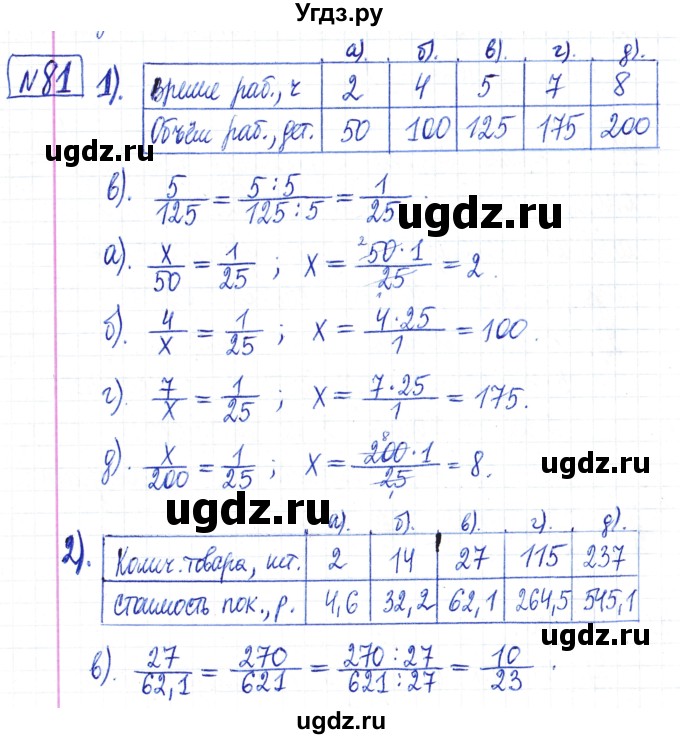 Угдз.ру
№81 1).
а). б). в). г). д).
время раб., ч 2 4 5 7 8
Объём раб., дет. 50 100 125 175 200
ugdz.ru ugdz.ru
в). 5/125 = 5:5/125:5 = 1/25.
ugdz.ru
а). x/50 = 1/25 ; x = 50·1/25 = 2.
б). 4/x = 1/25 ; x = 4·25/1 = 100.
г). 7/x = 1/25 ; x = 7·25/1 = 175.
д). x/200 = 1/25 ; x = 200·1/25 = 8.
ugdz.ru
ugdz.ru
2).
а). б). в). г). д).
Колич. товара, шт. 2 14 27 115 237
стоимость пок., р. 4,6 32,2 62,1 264,5 545,1
ugdz.ru ugdz.ru
в). 27/62,1 = 270/621 = 270:27/621:27 = 10/23.
ugdz.ru